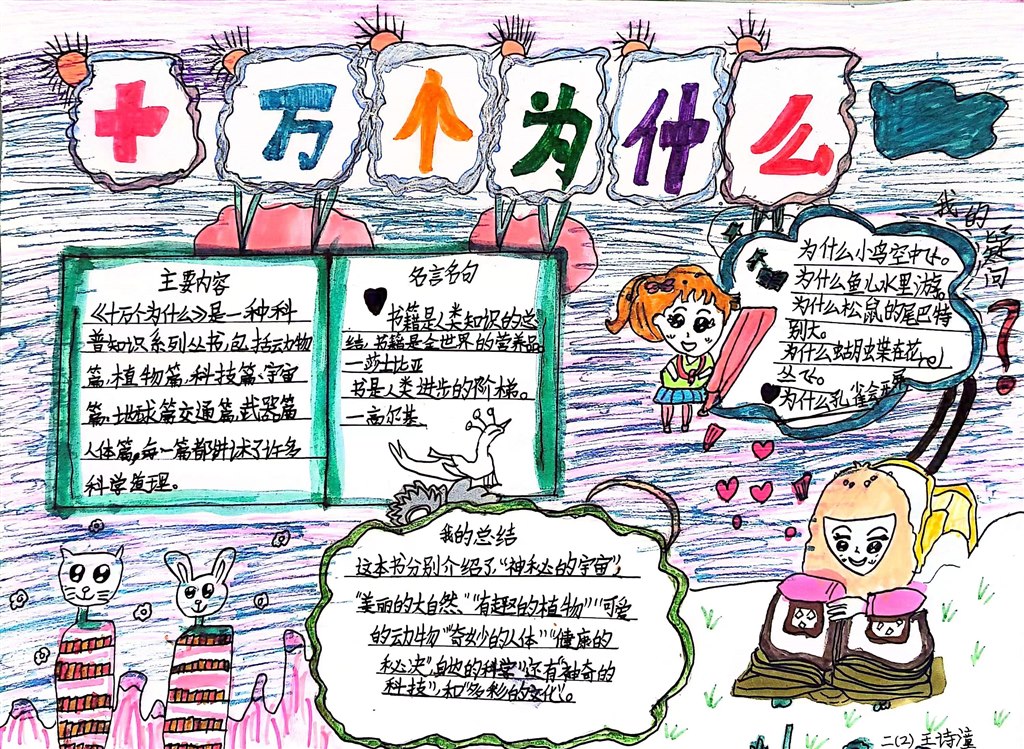 十万个为什么
主要内容
《十万个为什么》是一种科
普知识系列丛书,包括动物
篇,植物篇,科技篇、宇宙
篇、地球篇交通篇,武器篇
人体篇,每一篇都讲述了许多
科学道理。
名言名句
书籍是人类知识的总
结,书籍是全世界的营养品。
—莎士比亚
书是人类进步的阶梯。
—高尔基、
我的疑问?
为什么小鸟空中飞。
为什么鱼儿水里游。
为什么松鼠的尾巴特
别大。
为什么蝴蝶在花
丛飞。
为什么孔雀会开屏
我的总结
这本书分别介绍了“神秘的宇宙”,
“美丽的大自然、”“有趣的植物”“可爱
的动物”“奇妙的人体”“健康的
秘决”,身边的科学”还有“神奇的
科技”,和“多彩的文化”。
二(2) 王诗潼